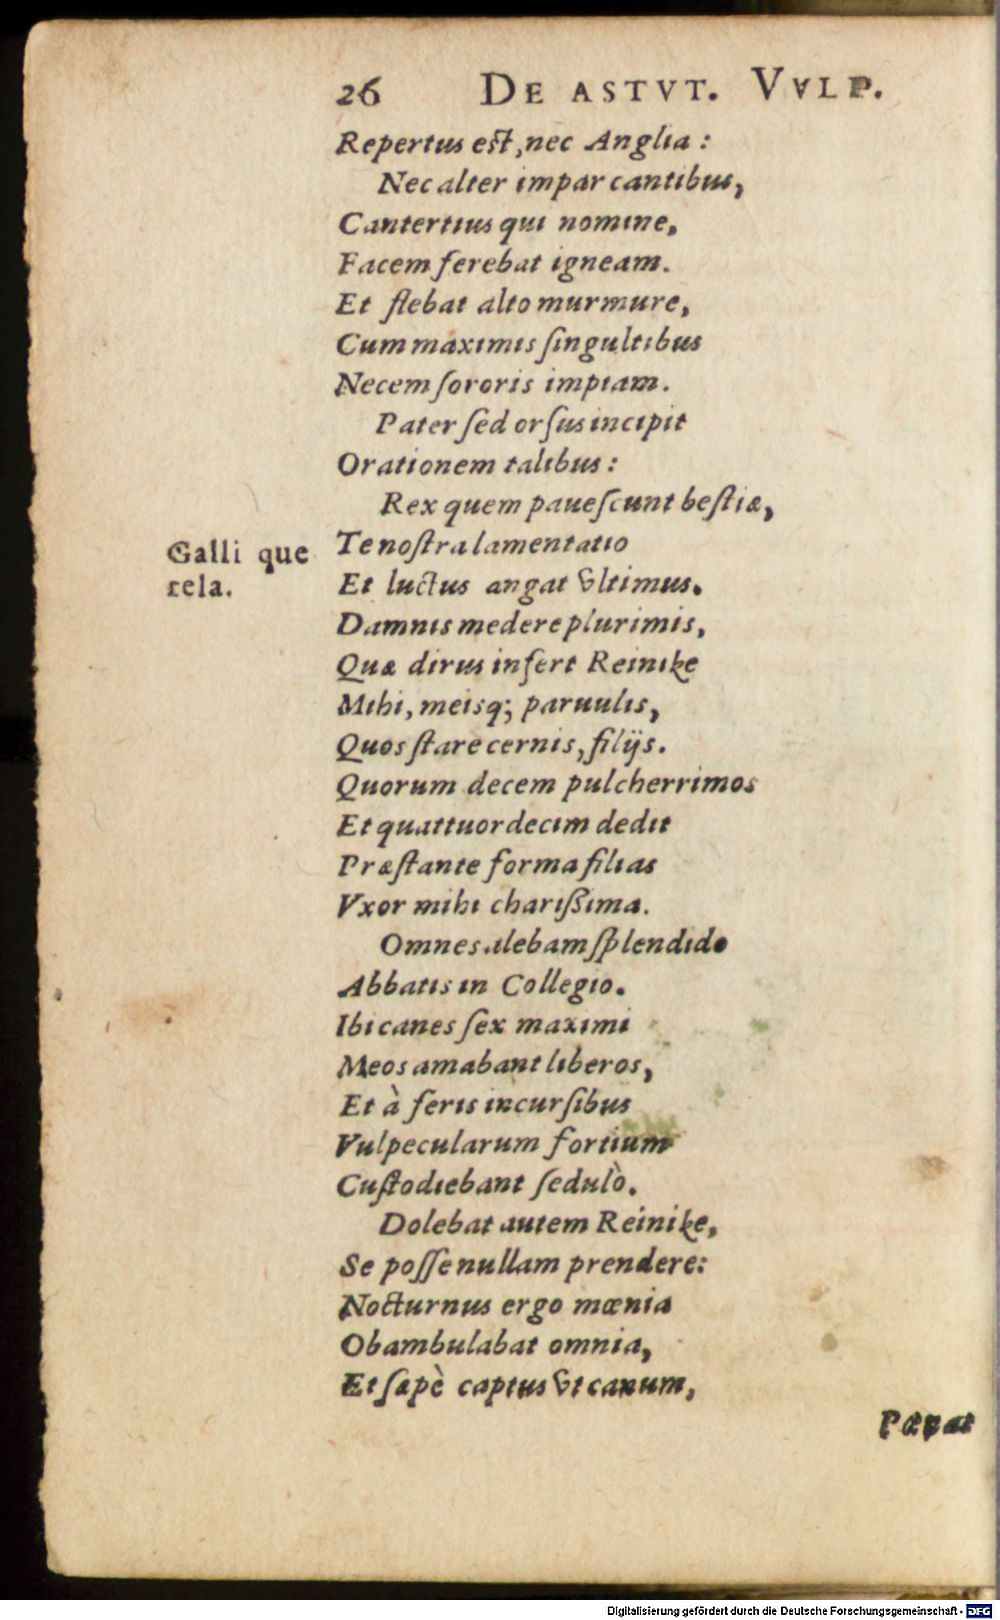 26 DE ASTVT. VVLP.
Repertus est, nec Anglia:
Nec alter impar cantibus,
Cantertius qui nomine,
Facem ferebat igneam.
Et flebat alto murmure,
Cum maximis ſingultibus
Necem ſororis impiam.
Pater ſed orſus incipit
Orationem talibus:
Rex quem paueſcunt beſtiæ,
Galli que
rela.
Te noſtra lamentatio
Et luctus angat vltimus.
Damnis medere plurimis,
Quæ dirus inſert Reinike
Mihi, meisq; paruulis,
Quos ſtare cernis, filijs.
Quorum decem pulcherrimos
Et quattuordecim dedit
Præſtante forma filias
Vxor mihi chariſsima.
Omnes alebam ſplendide
Abbatis in Collegio.
Ibi canes ſex maximi
Meos amabant liberos,
Et à feris incurſibus
Vulpecularum fortium
Cuſtodiebant ſedulò.
Dolebat autem Reinike,
Se poſſe nullam prendere:
Nocturnus ergo mœnia
Obambulabat omnia,
Et ſæpè captus vt canum,
Pœnat
Digitalisierung gefördert durch die Deutsche Forschungsgemeinschaft - DFG